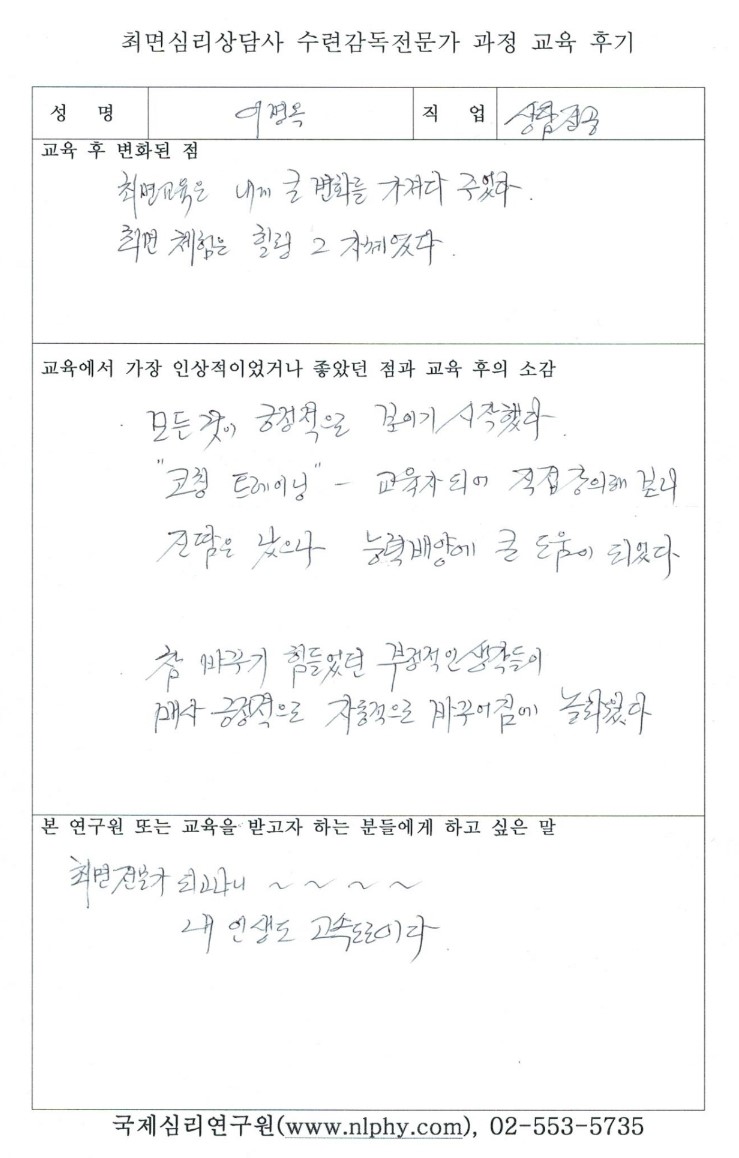 최면심리상담사 수련감독전문가 과정 교육 후기
성 명 이경옥 직 업 상담전공
교육 후 변화된 점
최면교육은 내게 큰 변화를 가져다 주었다.
최면 체험은 힐링 그 자체였다.
교육에서 가장 인상적이었거나 좋았던 점과 교육 후의 소감
· 모든 것이 긍정적으로 보이기 시작했다.
"코칭 트레이닝" - 교육자 되어 직접 강의해 보니
진땀은 났으나 능력배양에 큰 도움이 되었다.
· 참 바꾸기 힘들었던 부정적인 생각들이
매사 긍정적으로 자동적으로 바꾸어짐에 놀라웠다
본 연구원 또는 교육을 받고자 하는 분들에게 하고 싶은 말
최면전문가 되고나니 ~ ~ ~ ~
내 인생도 고속도로이다.
국제심리연구원(www.nlphy.com), 02-553-5735